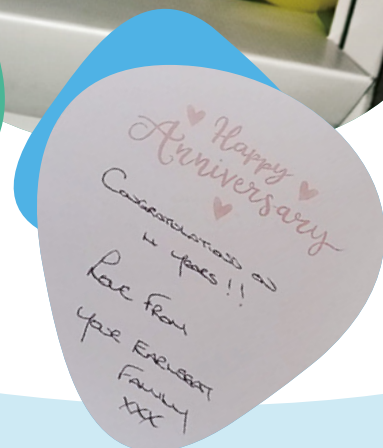 Happy
Anniversary
Congratulations on
4 years!!
Love From
your Earlsgat
Family
xxx